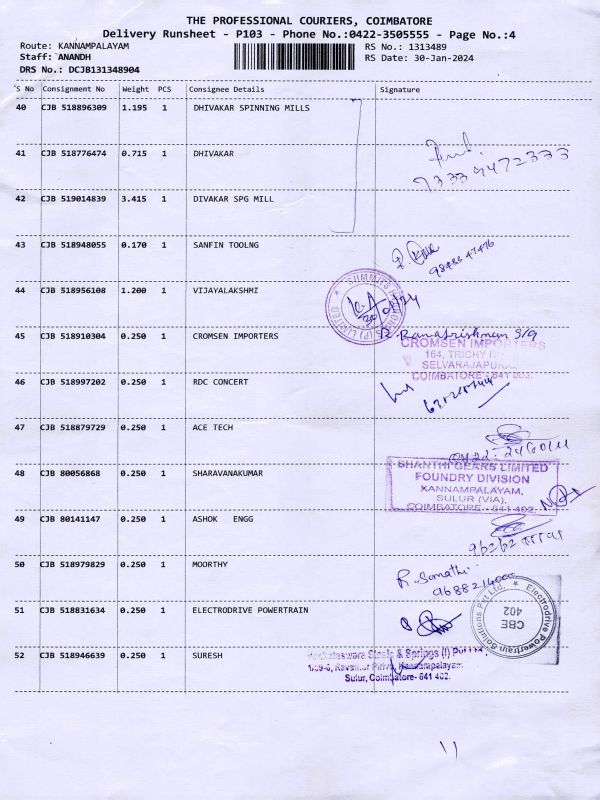 THE PROFESSIONAL COURIERS, COIMBATORE
Delivery Runsheet - P103 - Phone No.:0422-3505555 - Page No.:4
Route: KANNAMPALAYAM
RS No.: 1313489
Staff: ANANDH
RS Date: 30-Jan-2024
DRS No.: DCJB131348904
S No Consignment No Weight PCS Consignee Details Signature
40 CJB 518896309 1.195 1 DHIVAKAR SPINNING MILLS
41 CJB 518776474 0.715 1 DHIVAKAR
42 CJB 519014839 3.415 1 DIVAKAR SPG MILL
43 CJB 518948055 0.170 1 SANFIN TOOLNG
44 CJB 518956108 1.200 1 VIJAYALAKSHMI
45 CJB 518910304 0.250 1 CROMSEN IMPORTERS
CROMSEN IMPORTERS
164, TRICHY
SELVARAJAPURAM
COIMBATORE - 641
46 CJB 518997202 0.250 1 RDC CONCERT
47 CJB 518879729 0.250 1 ACE TECH
48 CJB 80056868 0.250 1 SHARAVANAKUMAR
SHANTHI GEARS LIMITED
FOUNDRY DIVISION
KANNAMPALAYAM,
SULUR (VIA),
COIMBATORE - 641 402.
49 CJB 80141147 0.250 1 ASHOK ENGG
50 CJB 518979829 0.250 1 MOORTHY
51 CJB 518831634 0.250 1 ELECTRODRIVE POWERTRAIN
Electrodrive Powertrain Solutions Pvt Ltd.
CBE
402
52 CJB 518946639 0.250 1 SURESH
Steels & Springs (I)
Kannampalayam
Sulur, Coimbatore- 641 402.